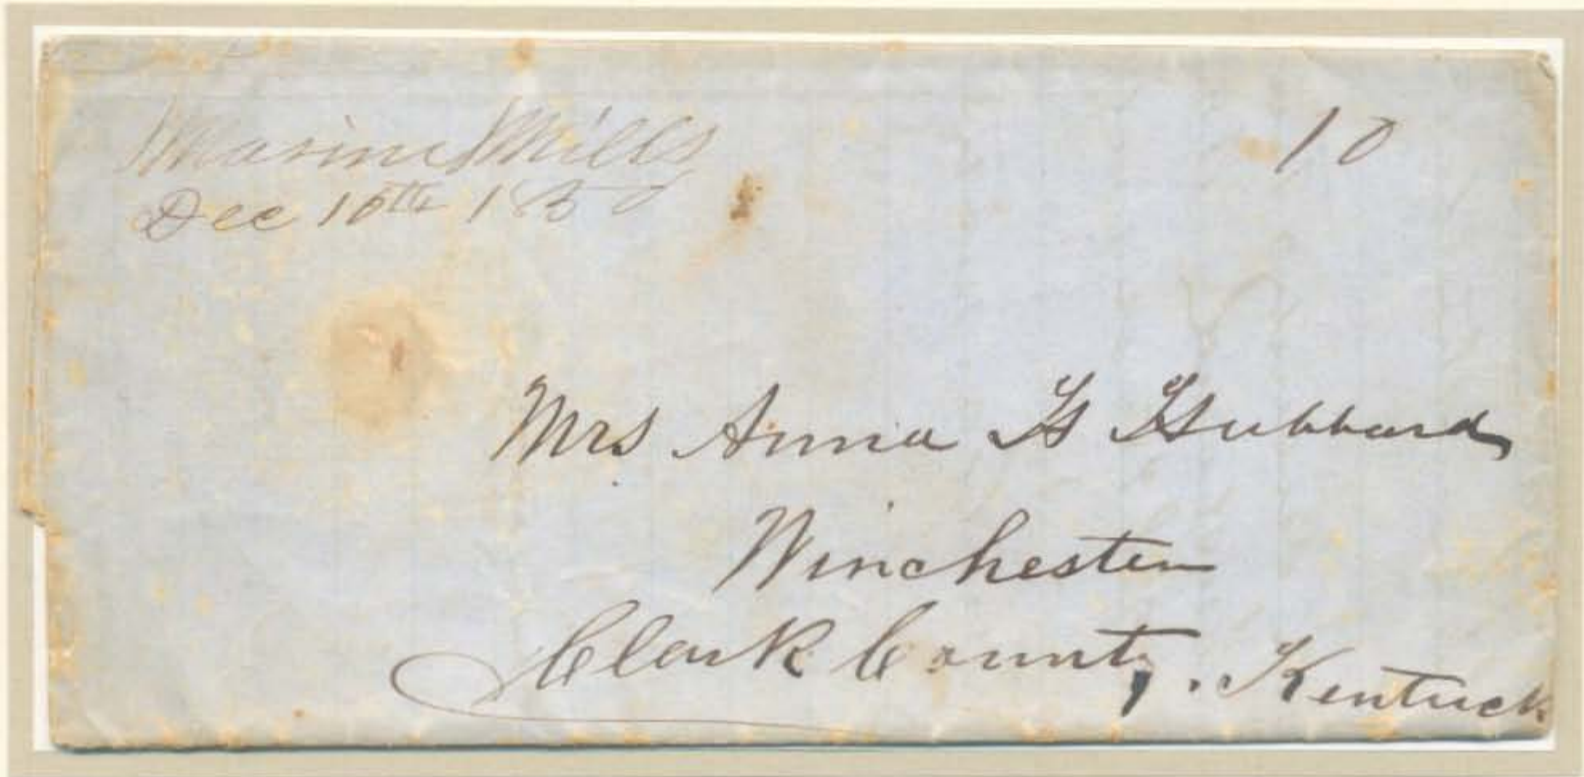 Marine Mills
Dec 10th 1850
10
Mrs Anna H Hubbard
Winchester
Clark County, Kentuck